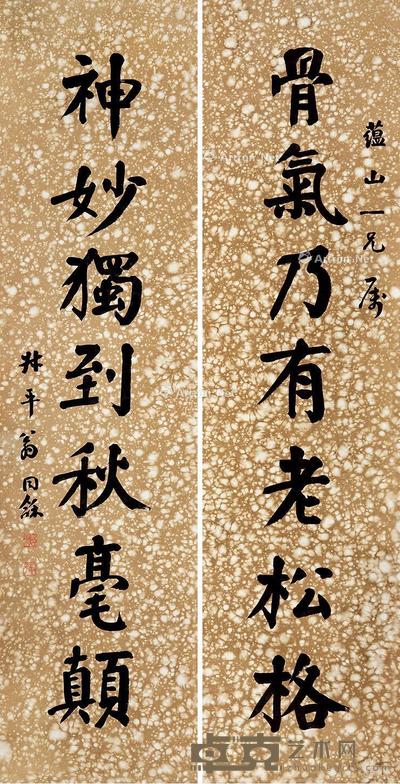 蕴山一兄属
骨氣乃有老松格
神妙獨到秋毫顛
叔平翁同龢
Artron.Net
卓克艺术网